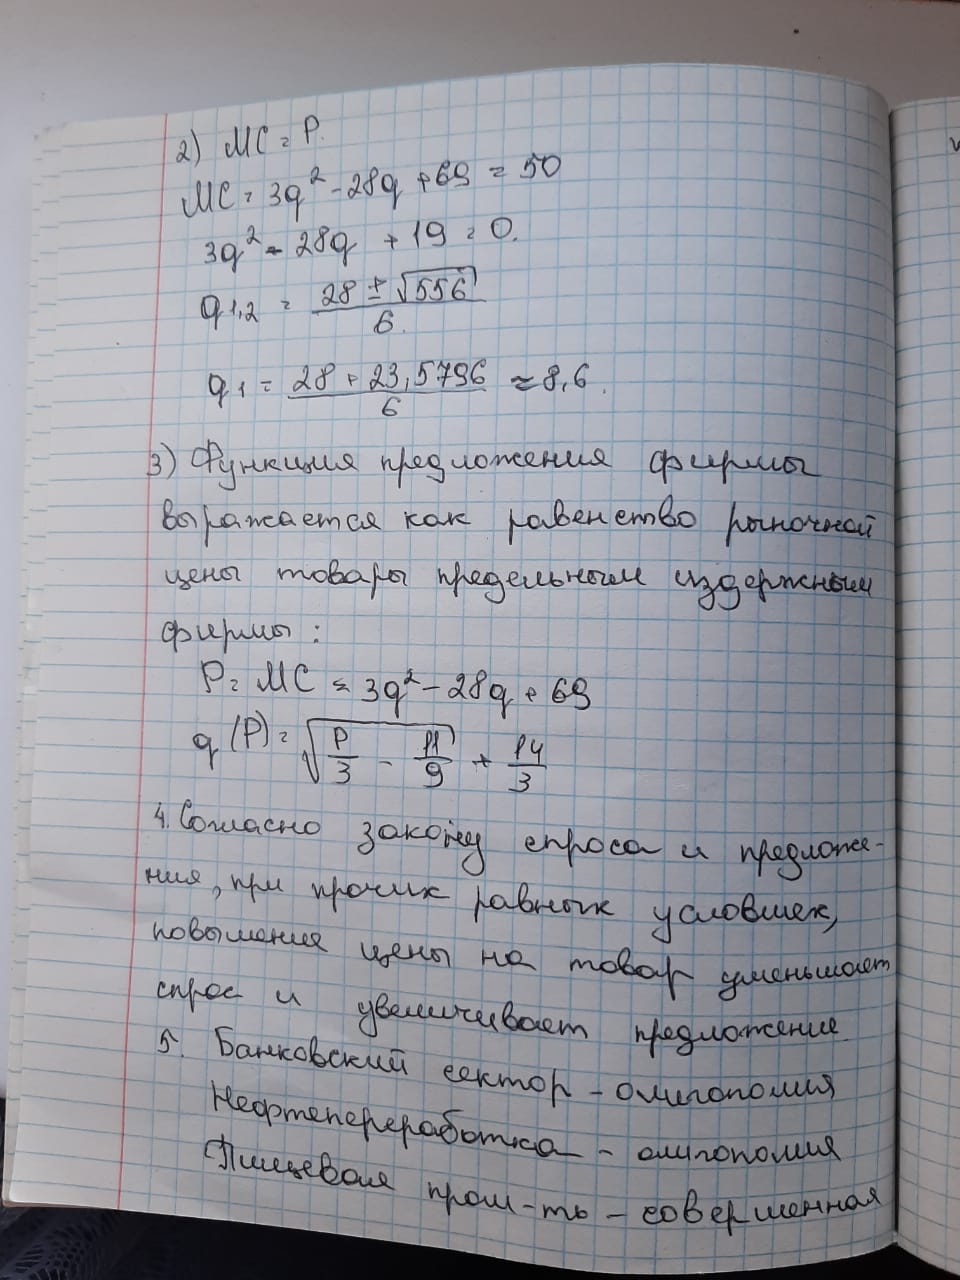 2) MC = P.
MC = 3q² - 28q + 69 = 50
3q² - 28q + 19 = 0.
q1,2 = (28 ± √556) / 6.
q1 = (28 + 23,5796) / 6 ≈ 8,6.
3) Функция предложения фирмы
выражается как равенство рыночной
цены товары предельным издержкным
фирмы:
P = MC = 3q² - 28q + 69
q(P) = √(P/3 - 11/9) + 14/3
4. Согласно закону спроса и предложе-
ния, при прочих равных условиях,
повышение цены на товар уменьшает
спрос и увеличивает предложение.
5. Банковский сектор - олигополия
Нефтепереработка - олигополия
Пищевая пром-ть - совершенная